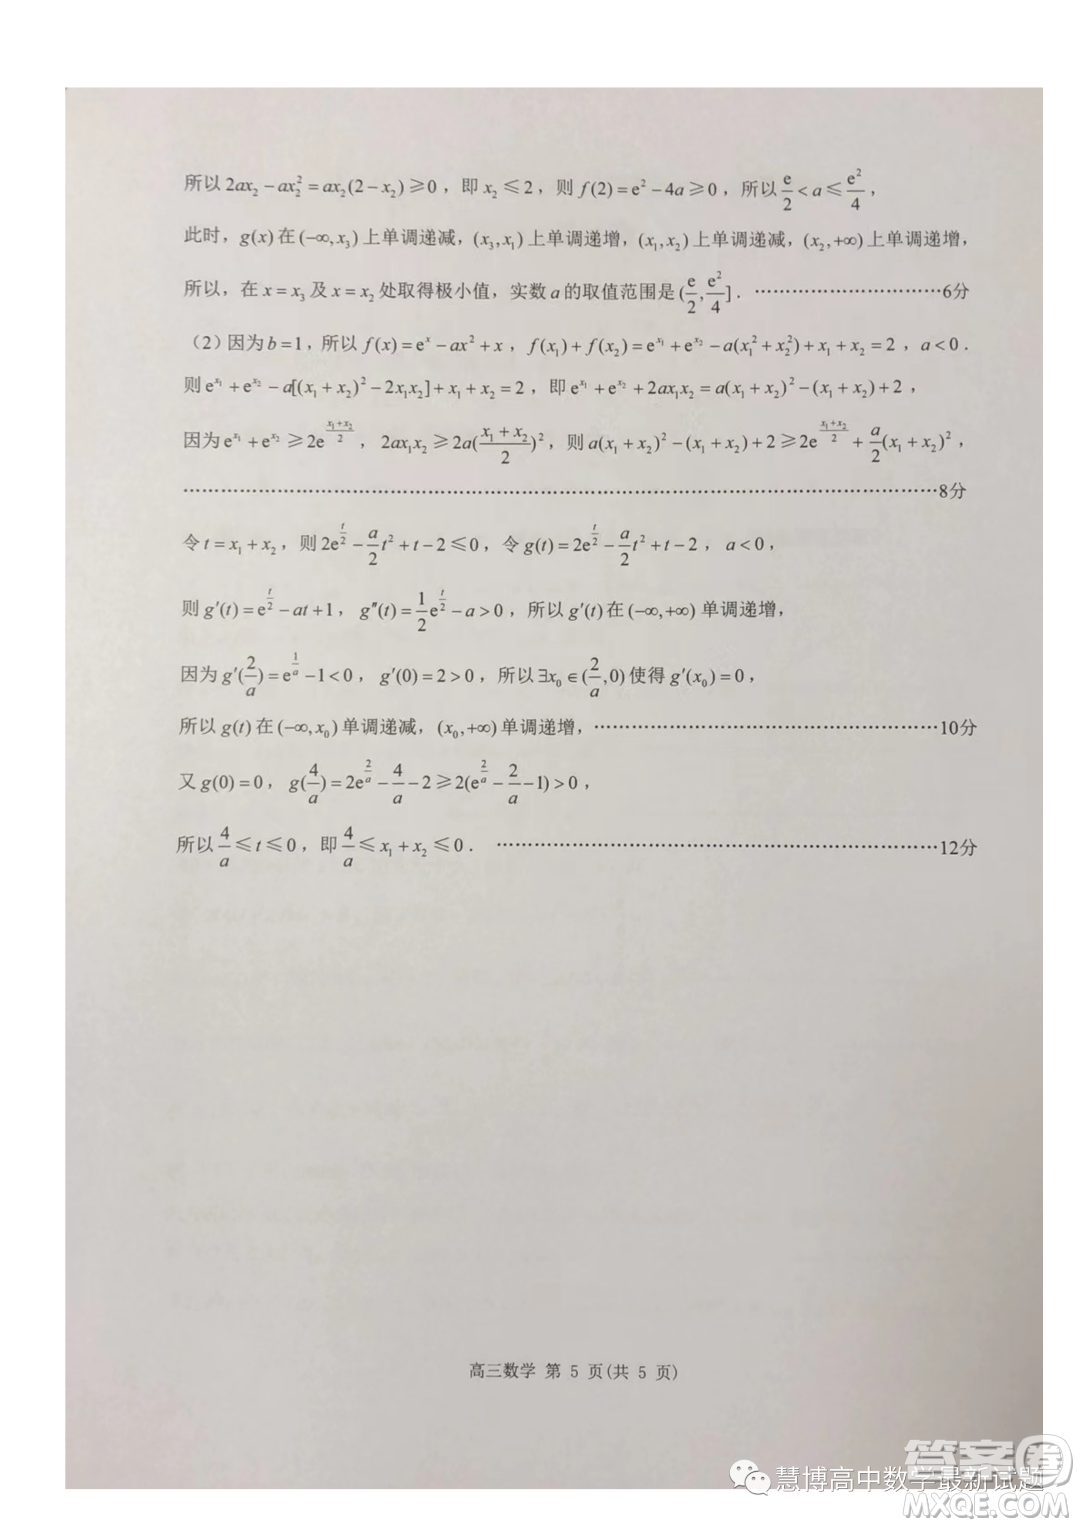 所以 2ax₂ − ax₂² = ax₂(2 − x₂) ≥ 0，即 x₂ ≤ 2，则 f(2) = e² − 4a ≥ 0，所以 e/2 < a ≤ e²/4，
此时，g(x) 在 (−∞, x₃) 上单调递减，(x₃, x₁) 上单调递增，(x₁, x₂) 上单调递减，(x₂, +∞) 上单调递增，
所以，在 x = x₃ 及 x = x₂ 处取得极小值，实数 a 的取值范围是 (e/2, e²/4]．……………………………6分
（2）因为 b = 1，所以 f(x) = e^x − ax² + x，f(x₁) + f(x₂) = e^(x₁) + e^(x₂) − a(x₁² + x₂²) + x₁ + x₂ = 2，a < 0．
则 e^(x₁) + e^(x₂) − a[(x₁ + x₂)² − 2x₁x₂] + x₁ + x₂ = 2，即 e^(x₁) + e^(x₂) + 2ax₁x₂ = a(x₁ + x₂)² − (x₁ + x₂) + 2，
因为 e^(x₁) + e^(x₂) ≥ 2e^((x₁+x₂)/2)，2ax₁x₂ ≥ 2a((x₁ + x₂)/2)²，则 a(x₁ + x₂)² − (x₁ + x₂) + 2 ≥ 2e^((x₁+x₂)/2) + a/2(x₁ + x₂)²，
……………………………………………………………………………………………………………8分
令 t = x₁ + x₂，则 2e^(t/2) − a/2 t² + t − 2 ≤ 0，令 g(t) = 2e^(t/2) − a/2 t² + t − 2，a < 0，
则 g′(t) = e^(t/2) − at + 1，g″(t) = 1/2 e^(t/2) − a > 0，所以 g′(t) 在 (−∞, +∞) 单调递增，
因为 g′(2/a) = e^(1/a) − 1 < 0，g′(0) = 2 > 0，所以 ∃x₀ ∈ (2/a, 0) 使得 g′(x₀) = 0，
所以 g(t) 在 (−∞, x₀) 单调递减，(x₀, +∞) 单调递增，……………………………………………………10分
又 g(0) = 0，g(4/a) = 2e^(2/a) − 4/a − 2 ≥ 2(e^(2/a) − 2/a − 1) > 0，
所以 4/a ≤ t ≤ 0，即 4/a ≤ x₁ + x₂ ≤ 0．……………………………………………………………………12分
高三数学 第 5 页(共 5 页)
慧博高中数学最新试题
答案圈
MXQE.COM